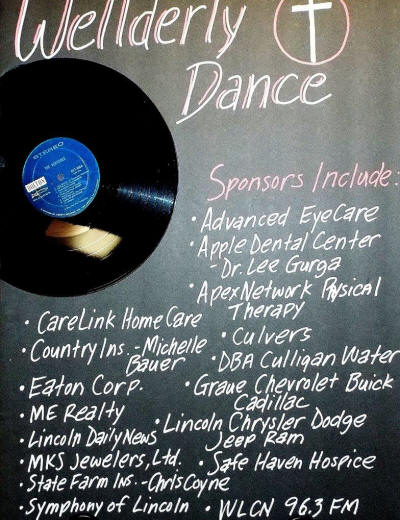 Wellderly
Dance
STEREO
Sponsors Include:
• Advanced EyeCare
• Apple Dental Center
- Dr. Lee Gurga
• Apex Network Physical
Therapy
• CareLink HomeCare
• Country Ins - Michelle
Bauer
• Culvers
• DBA Culligan Water
• Eaton Corp.
• Graue Chevrolet Buick
Cadillac
• ME Realty
• Lincoln Chrysler Dodge
Jeep Ram
• Lincoln Daily News
• MKS Jewelers, Ltd.
• Safe Haven Hospice
• State Farm Ins. - Chris Coyne
• Symphony of Lincoln
• WLCN 96.3 FM